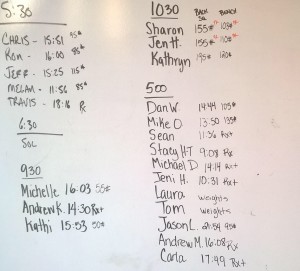 5:30
CHRIS - 15:51 95#
RON - 16:00 85#
JEFF - 15:25 115#
MEGAN - 11:56 85#
TRAVIS - 18:16 Rx
6:30
SOL
930
Michelle 16:03 55#
Andrew K. 14:30 Rx+
Kathi 15:53 50#
1030 BACK SQ BENCH
Sharon 155# 103#
Jen H. 155# 110#
Kathryn 195# 120#
500
Dan W. 14:44 105#
Mike O. 13:50 135#
Sean 11:36 Rx+
Stacy HT 9:08 Rx
Michael D. 14:14 Rx+
Jeni H. 10:31 Rx+
Laura weights
Tom weights
Jason L. 21:54 95#
Andrew M. 16:08 Rx
Carla 17:49 Rx+